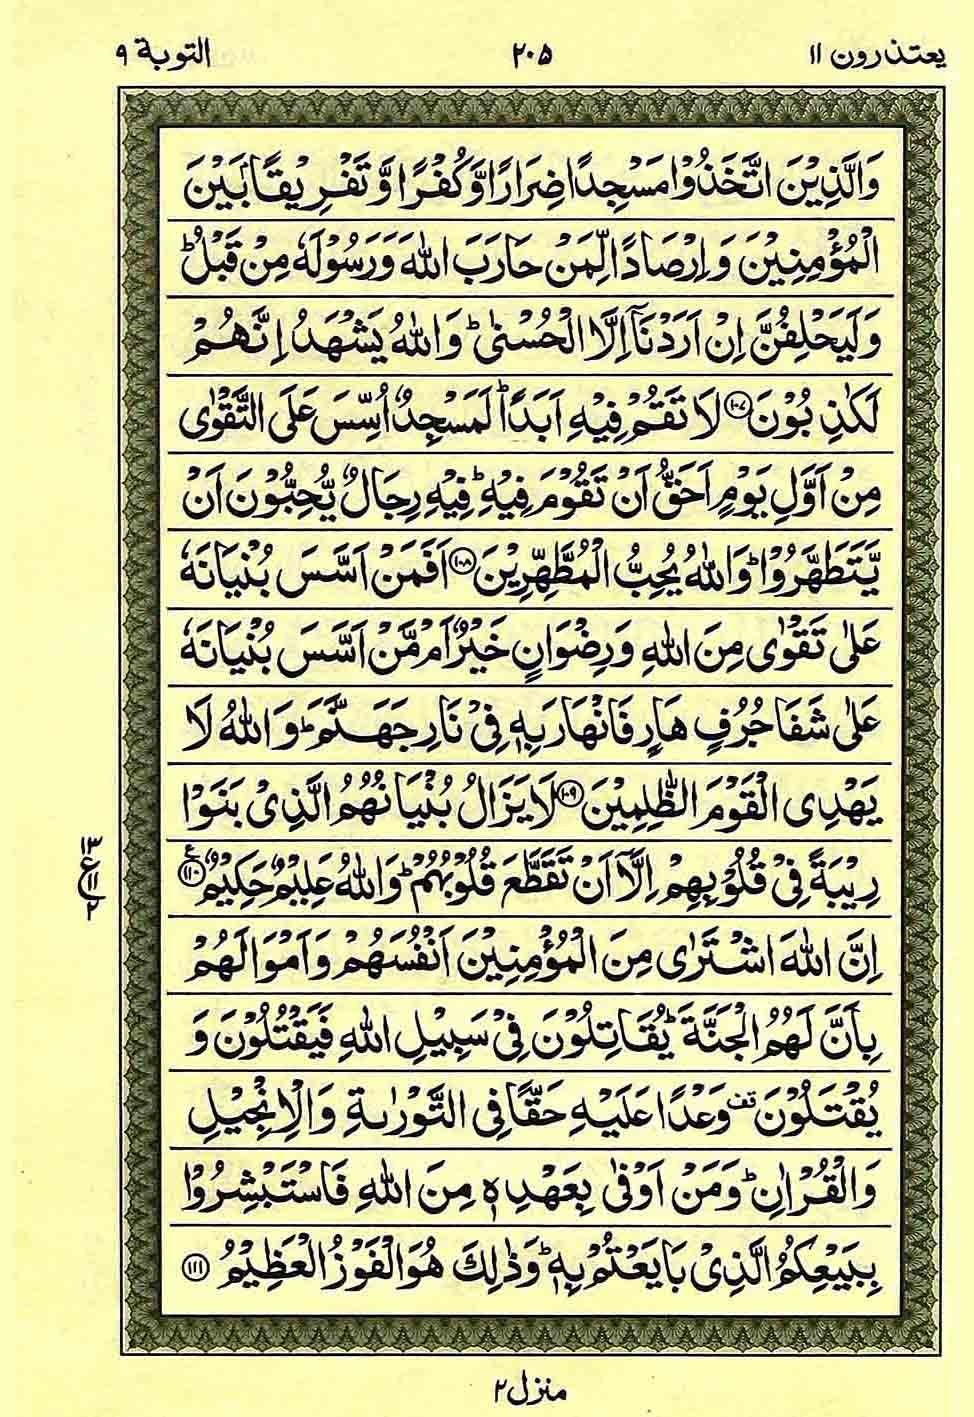 يعتذرون ١١ ٢٠٥ التوبة ٩
وَالَّذِيْنَ اتَّخَذُوْا مَسْجِدًا ضِرَارًا وَّكُفْرًا وَّتَفْرِيْقًۢا بَيْنَ
الْمُؤْمِنِيْنَ وَاِرْصَادًا لِّمَنْ حَارَبَ اللّٰهَ وَرَسُوْلَهٗ مِنْ قَبْلُ ؕ
وَلَيَحْلِفُنَّ اِنْ اَرَدْنَاۤ اِلَّا الْحُسْنٰى ؕ وَاللّٰهُ يَشْهَدُ اِنَّهُمْ
لَكٰذِبُوْنَ ١٠٧ لَا تَقُمْ فِيْهِ اَبَدًا ؕ لَمَسْجِدٌ اُسِّسَ عَلَى التَّقْوٰى
مِنْ اَوَّلِ يَوْمٍ اَحَقُّ اَنْ تَقُوْمَ فِيْهِ ؕ فِيْهِ رِجَالٌ يُّحِبُّوْنَ اَنْ
يَّتَطَهَّرُوْا ؕ وَاللّٰهُ يُحِبُّ الْمُطَّهِّرِيْنَ ١٠٨ اَفَمَنْ اَسَّسَ بُنْيَانَهٗ
عَلٰى تَقْوٰى مِنَ اللّٰهِ وَرِضْوَانٍ خَيْرٌ اَمْ مَّنْ اَسَّسَ بُنْيَانَهٗ
عَلٰى شَفَا جُرُفٍ هَارٍ فَانْهَارَ بِهٖ فِيْ نَارِ جَهَنَّمَ ؕ وَاللّٰهُ لَا
يَهْدِى الْقَوْمَ الظّٰلِمِيْنَ ١٠٩ لَا يَزَالُ بُنْيَانُهُمُ الَّذِيْ بَنَوْا
رِيْبَةً فِيْ قُلُوْبِهِمْ اِلَّاۤ اَنْ تَقَطَّعَ قُلُوْبُهُمْ ؕ وَاللّٰهُ عَلِيْمٌ حَكِيْمٌ ١١٠ ع
١٣
ع ١١
٢
اِنَّ اللّٰهَ اشْتَرٰى مِنَ الْمُؤْمِنِيْنَ اَنْفُسَهُمْ وَاَمْوَالَهُمْ
بِاَنَّ لَهُمُ الْجَنَّةَ ؕ يُقَاتِلُوْنَ فِيْ سَبِيْلِ اللّٰهِ فَيَقْتُلُوْنَ وَ
يُقْتَلُوْنَ قف وَعْدًا عَلَيْهِ حَقًّا فِى التَّوْرٰىةِ وَالْاِنْجِيْلِ
وَالْقُرْاٰنِ ؕ وَمَنْ اَوْفٰى بِعَهْدِهٖ مِنَ اللّٰهِ فَاسْتَبْشِرُوْا
بِبَيْعِكُمُ الَّذِيْ بَايَعْتُمْ بِهٖ ؕ وَذٰلِكَ هُوَ الْفَوْزُ الْعَظِيْمُ ١١١
منزل ٢